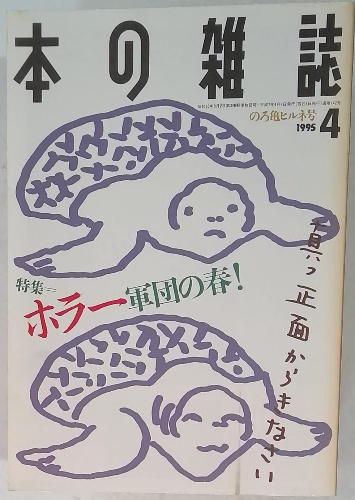 本の雑誌
のろ亀ヒルネ号
1995 4
特集=
ホラー軍団の春!
正面からきなさい